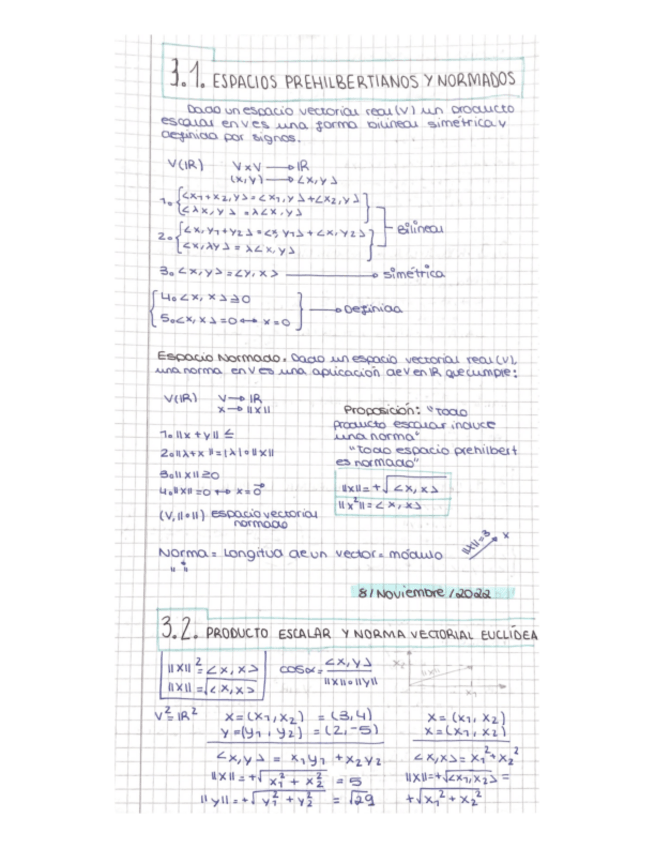 3.1. ESPACIOS PREHILBERTIANOS Y NORMADOS
Dado un espacio vectorial real (V) un producto
escalar en V es una forma bilineal simétrica y
definida por signos.
V(IR) V x V → IR
(x,y) → <x,y>
1. { <x1+x2,y> = <x1,y> + <x2,y>
<λx,y> = λ<x,y>
2. { <x,y1+y2> = <x,y1> + <x,y2> } Bilineal
<x,λy> = λ<x,y>
3. <x,y> = <y,x> → simétrica
4. <x,x> ≥ 0
5. <x,x> = 0 ↔ x=0 → Definida
Espacio Normado. Dado un espacio vectorial real (V),
una norma en V es una aplicación de V en IR que cumple:
V(IR) V → IR
x → ||x||
1. ||x+y|| ≤
2. ||λ+x|| = |λ|·||x||
3. ||x|| ≥ 0
4. ||x|| = 0 ↔ x=0
(V, ||·||) espacio vectorial
normado
Proposición: "Todo
producto escalar induce
una norma"
"todo espacio prehilbert
es normado"
||x|| = +√<x,x>
||x²|| = <x,x>
Norma = Longitud de un vector = módulo
" "
||x||=3 x
8/Noviembre/2022
3.2. PRODUCTO ESCALAR Y NORMA VECTORIAL EUCLÍDEA
||x||² = <x,x>
||x|| = √<x,x>
cosα = <x,y> / ||x||·||y||
x2 ||x|| x1
V² = IR² x = (x1,x2) = (3,4)
y = (y1,y2) = (2,-5)
<x,y> = x1y1 + x2y2
||x|| = +√x1² + x2² = 5
||y|| = +√y1² + y2² = √29
x = (x1,x2)
x = (x1,x2)
<x,x> = x1² + x2²
||x|| = +√<x1,x2> =
+√x1² + x2²